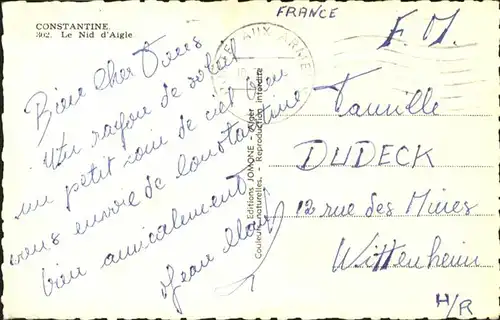 CONSTANTINE.
302. Le Nid d'Aigle
Bien Cher Tous
Un rayon de soleil
un petit coin de ciel bleu
vous envoie de Constantine
bien amicalement
Jean
Editions JOMONE - Alger
Couleurs naturelles. - Reproduction interdite
AUX ARMÉES
FRANCE
F. M.
Famille
DUDECK
12 rue des Mines
Wittenheim
H/R